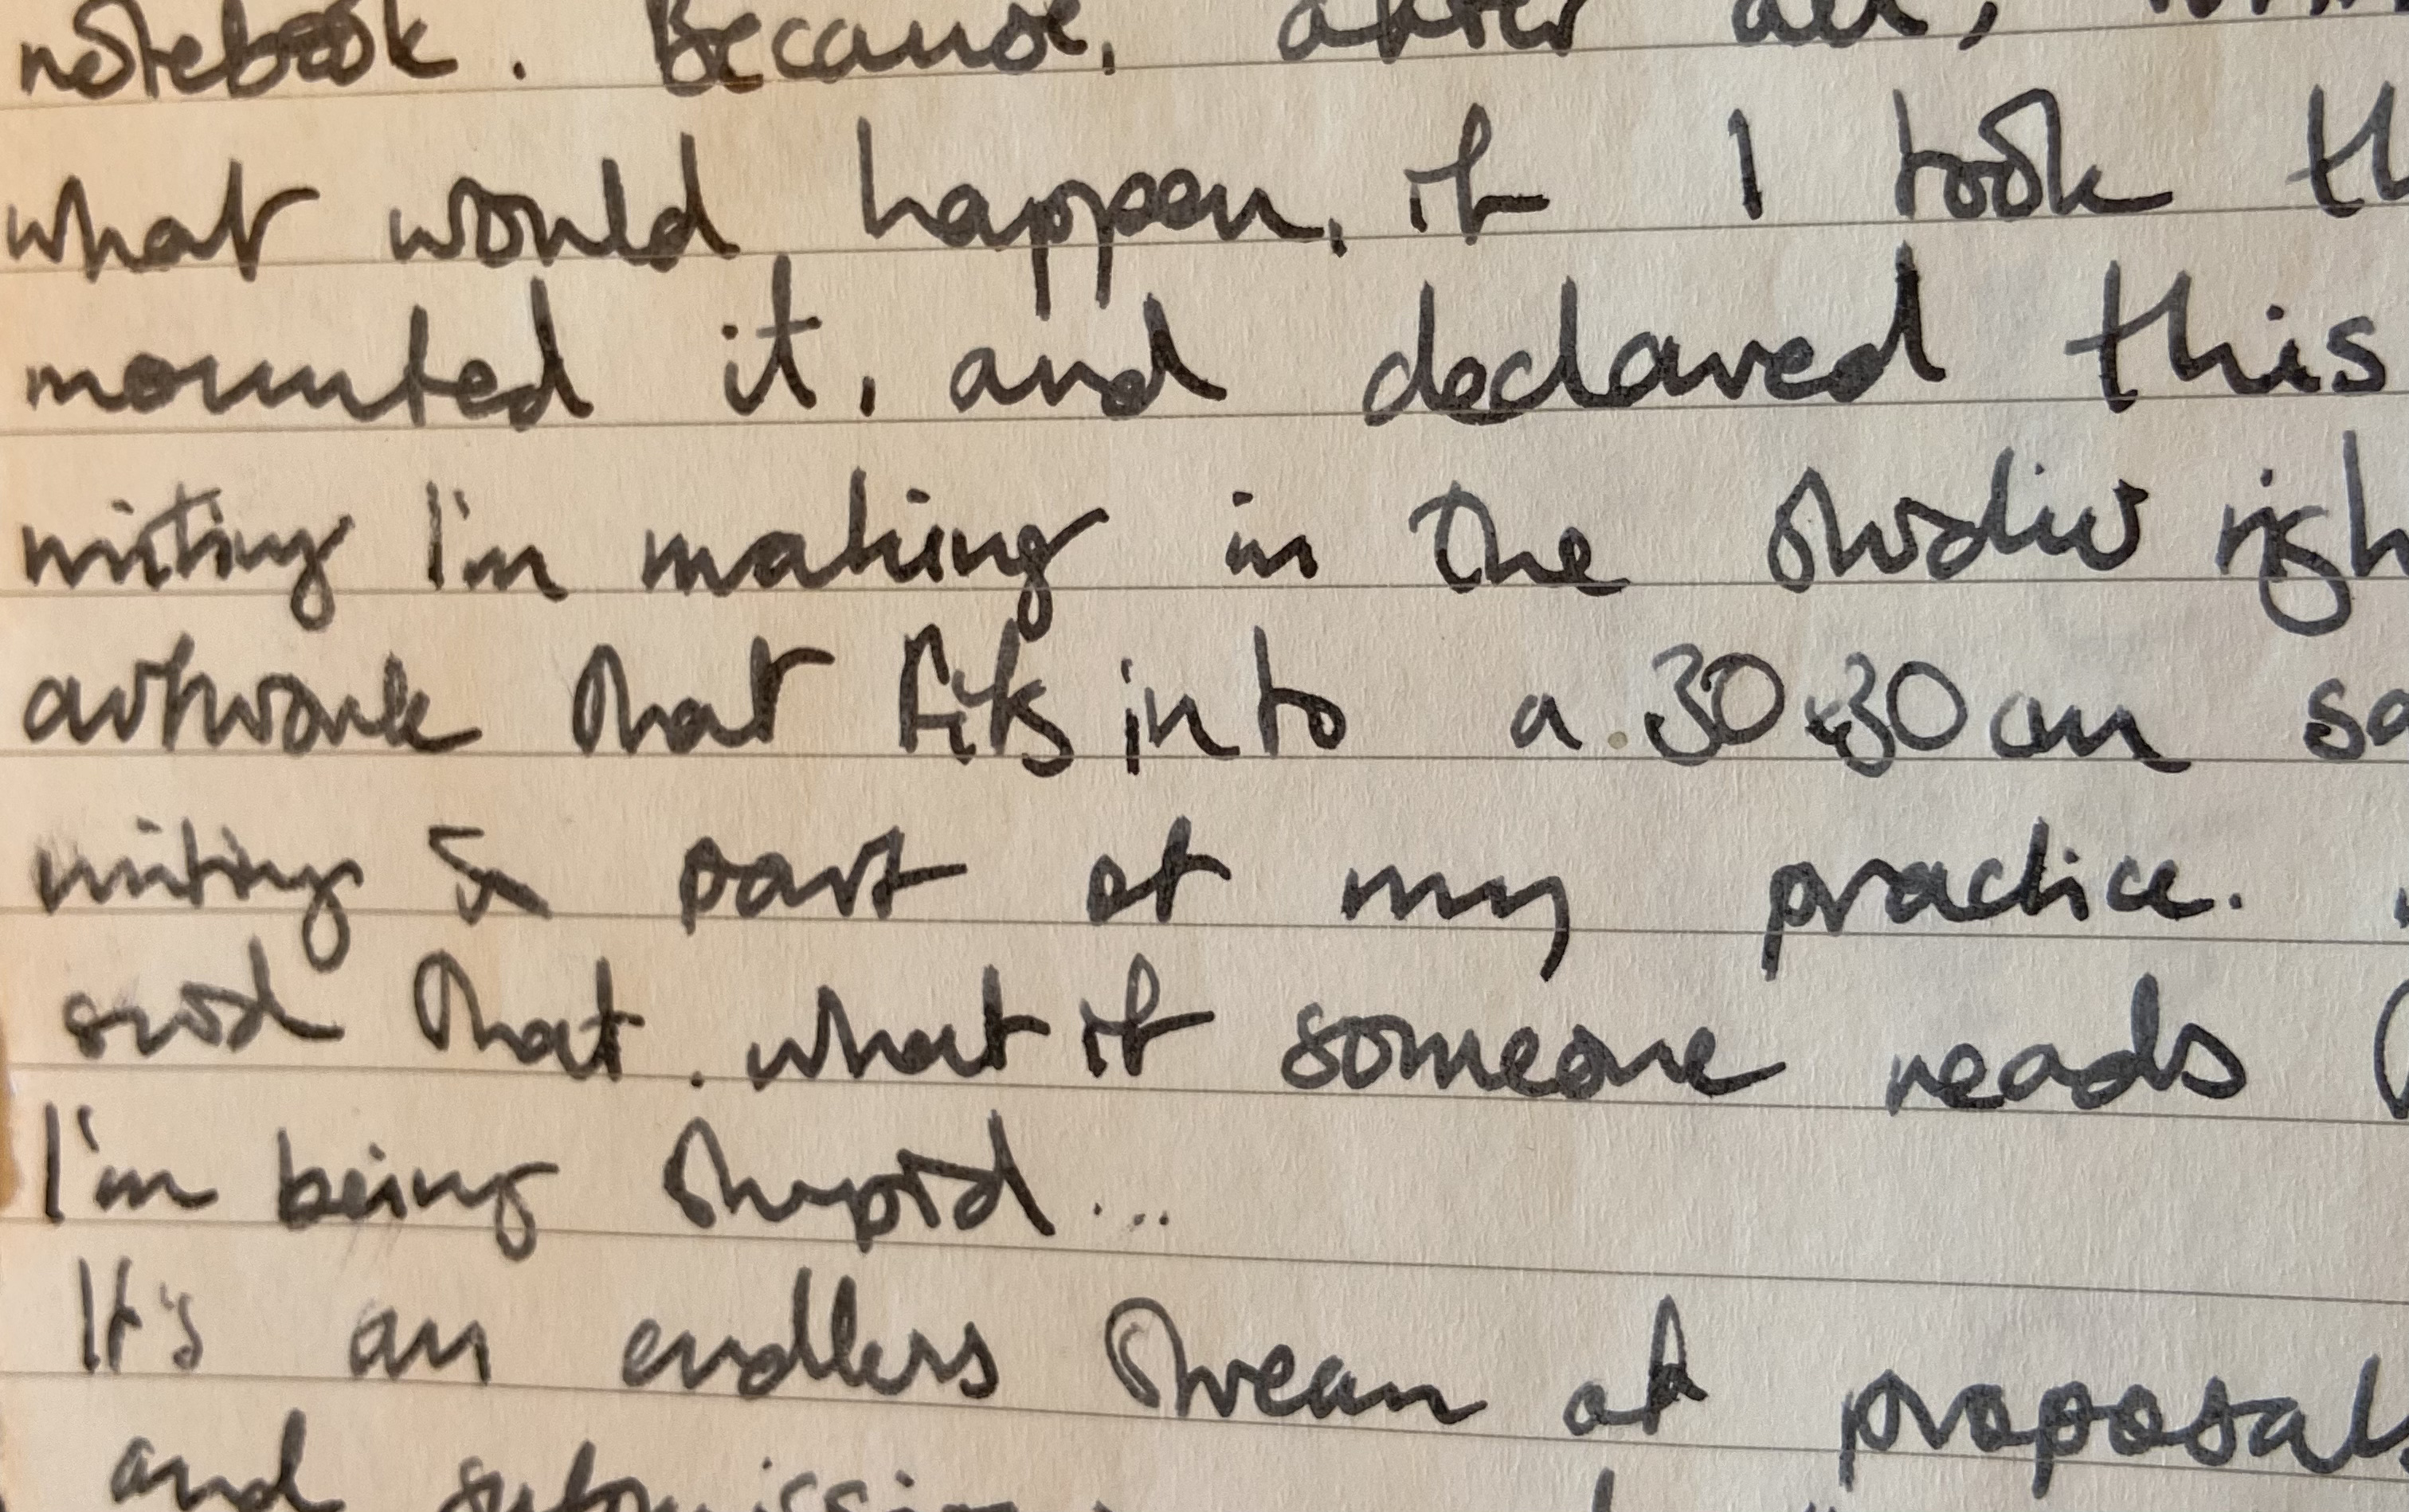 notebook. Because, after all,
what would happen, if I took
mounted it, and declared this
writing I'm making in the studio
artwork that fits into a 30x30cm
writing is part of my practice.
said that. what if someone reads
I'm being stupid...
It's an endless stream of proposals
and